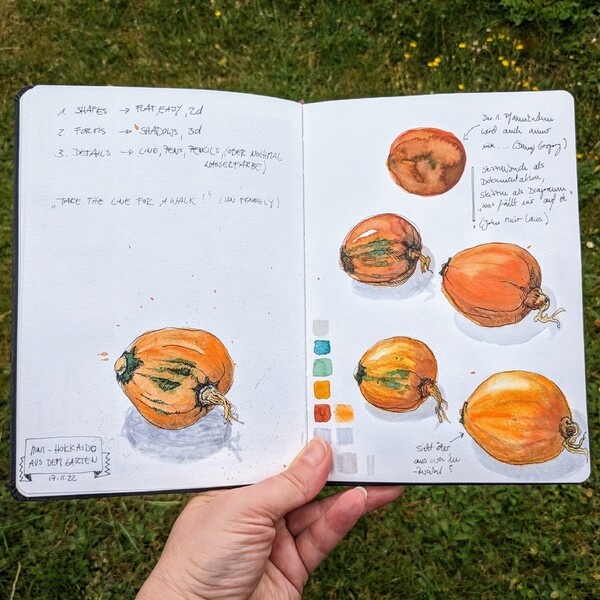 1. SHAPES → FLAT, EASY, 2d
2. FORMS → SHADOWS, 3d
3. DETAILS → LINE, PENS, PENCILS, (ODER NOCHMAL
WASSERFARBE)
„TAKE THE LINE FOR A WALK!" (IAN FENNELLY)
MINI-HOKKAIDO
AUS DEM GARTEN
17.11.22
Der 1. Pfannkuchen
wird auch immer
nix ... (Danny Gregory)
als
Dokumentation,
Skizze als Diagramm
„was fällt mir auf"
(John Muir Laws)
Sieht eher
aus wie